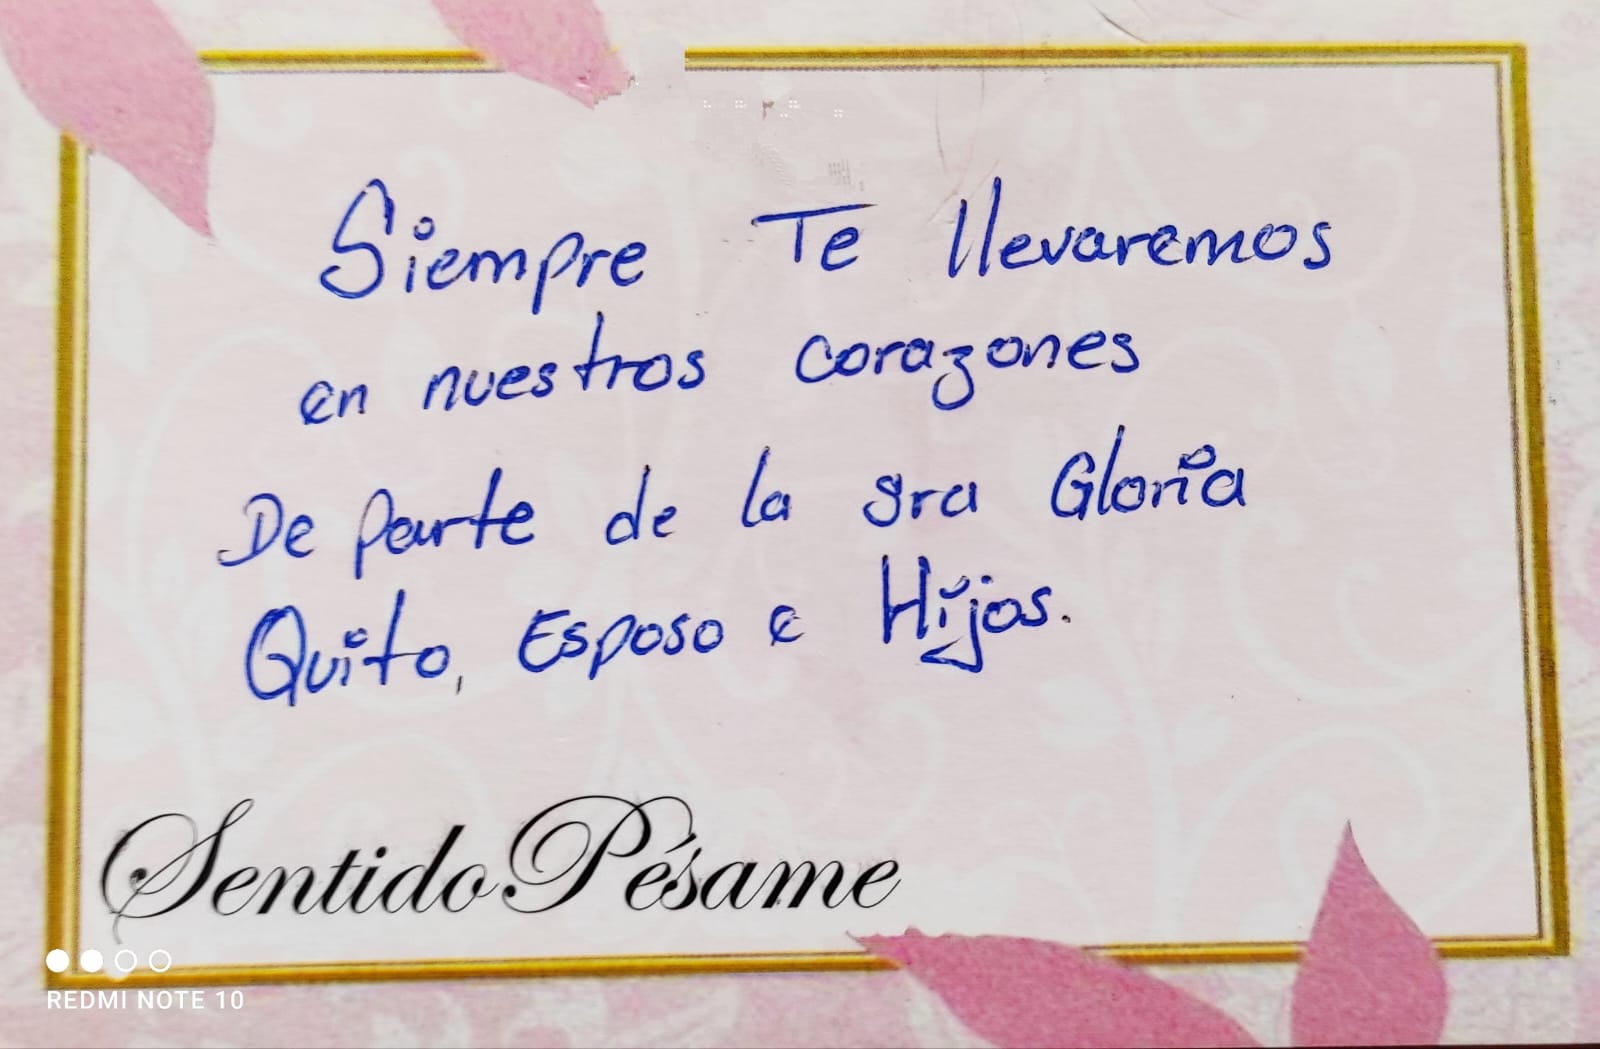 Siempre Te llevaremos
en nuestros corazones
De parte de la sra Gloria
Quito, Esposo e Hijos.
Sentido Pésame
REDMI NOTE 10